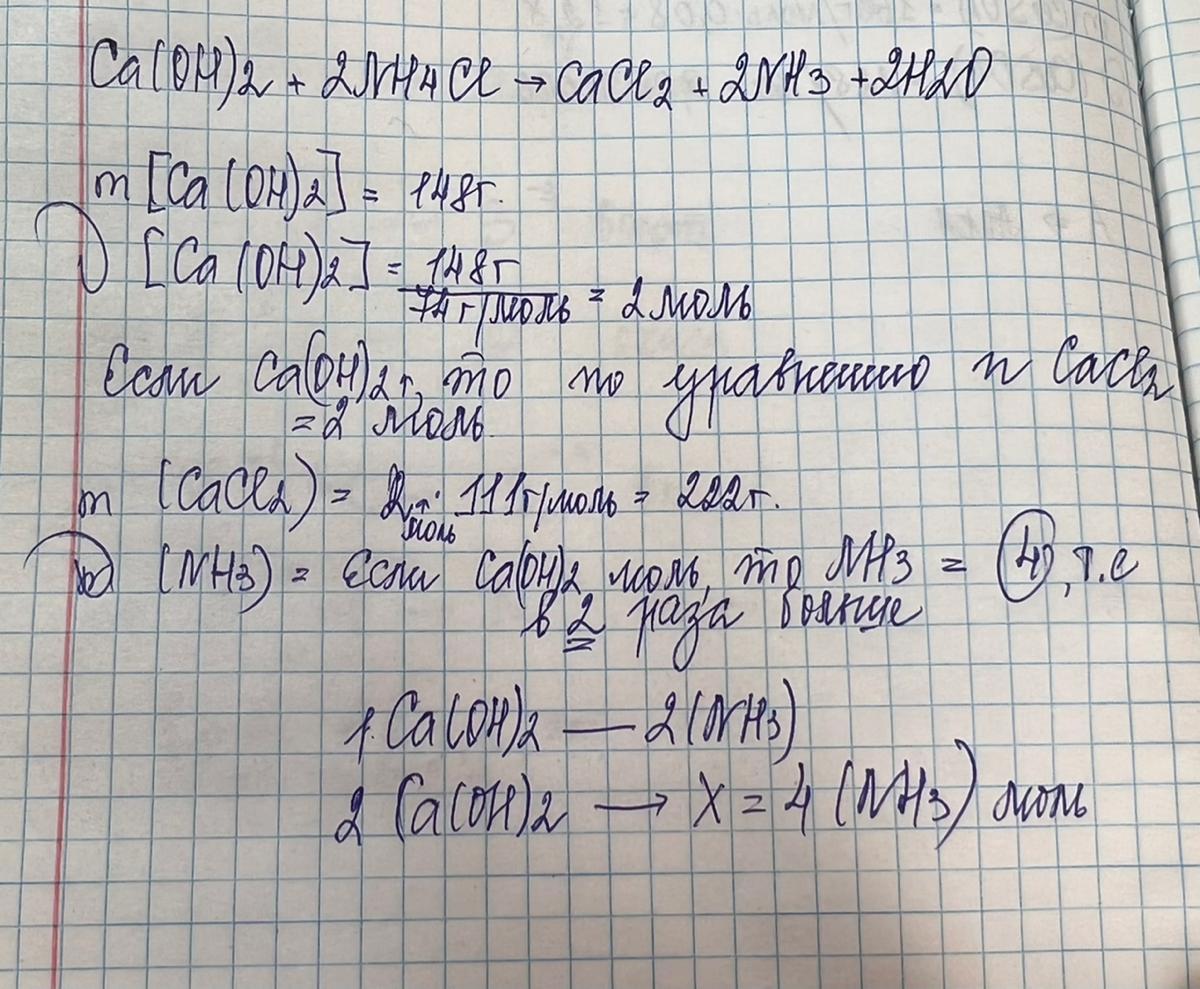 Ca(OH)2 + 2NH4Cl → CaCl2 + 2NH3 + 2H2O
m [Ca(OH)2] = 148г.
[Ca(OH)2] = 148г
74г/моль = 2 моль
Если Ca(OH)2 то по уравнению n CaCl2
= 2 моль.
m (CaCl2) = 2 · 111г/моль = 222г.
моль
(NH3) = Если Ca(OH)2 моль, то NH3 = 4, т.е
в 2 раза больше
1. Ca(OH)2 — 2(NH3)
2 Ca(OH)2 → X = 4 (NH3) моль